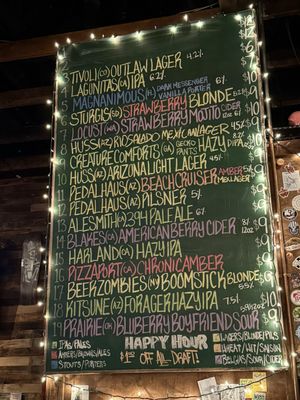 3 TIVOLI (CO) OUTLAW LAGER 4.2%
4 LAGUNITAS (CA) IPA 6.2%
5 MAGNANIMOUS (FL) DARK MESSENGER VANILLA PORTER 6%
6 STURGIS (SD) STRAWBERRY BLONDE 5.2%
7 LOCUST (WA) STRAWBERRY MOJITO CIDER
8 HUSS (AZ) RIO SALADO MEXICAN LAGER 4.5%
9 CREATURE COMFORTS (GA) GECKO PANTS HAZY IPA
10 HUSS (AZ) ARIZONA LIGHT LAGER 4.5%
11 PEDALHAUS (AZ) BEACH CRUISER AMBER
12 PEDALHAUS (AZ) PILSNER 5%
13 ALESMITH (CA) .394 PALE ALE 6%
14 BLAKES (MI) AMERICAN BERRY CIDER
15 HARLAND (CA) HAZY IPA
16 PIZZA PORT (CA) CHRONIC AMBER
17 BEER ZOMBIES (NV) BOOMSTICK BLONDE
18 KITSUNE (AZ) FORAGER HAZY IPA 7.5%
19 PRAIRIE (OK) BLUBERRY BOYFRIEND SOUR $9
HAPPY HOUR
$1.00 OFF ALL DRAFT!
IPAS/PALES
AMBERS/BROWNS/ALES
STOUTS/PORTERS
LAGERS/BLONDE/PILS
WHEAT/WIT/SAISON
BELGIANS/SOUR/CIDER